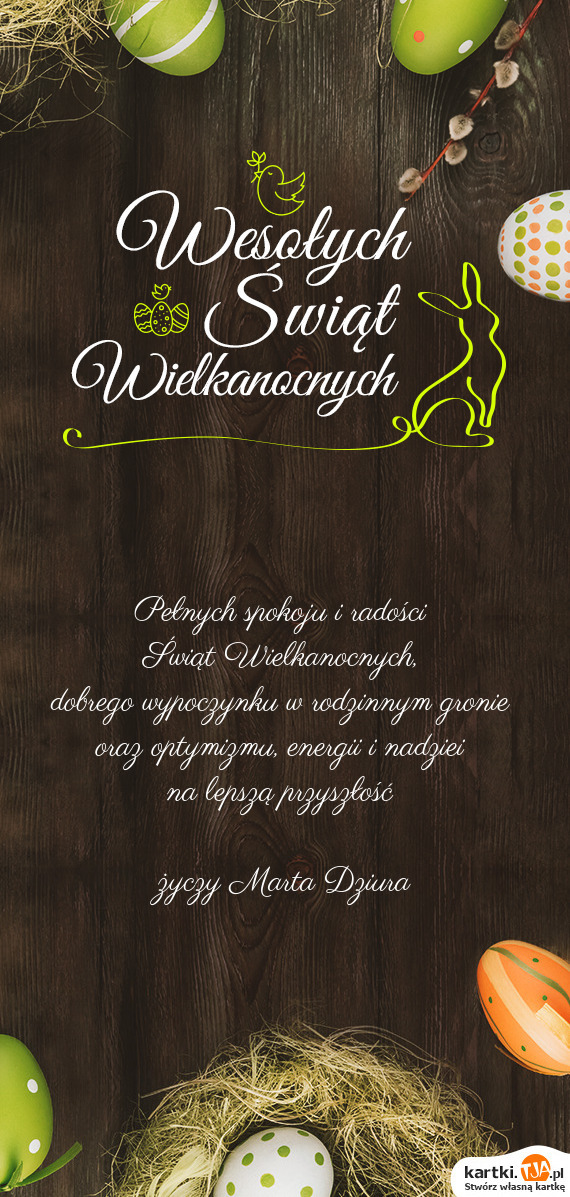 Wesołych
Świąt
Wielkanocnych
Pełnych spokoju i radości
Świąt Wielkanocnych,
dobrego wypoczynku w rodzinnym gronie
oraz optymizmu, energii i nadziei
na lepszą przyszłość
życzy Marta Dziura
kartki.TJA.pl
Stwórz własną kartkę